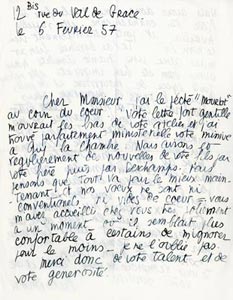 12 Bis rue du Val de Grace
le 5 Fevrier 57
Cher Monsieur j'ai le péché "mourlot"
au coin du cœur. Votre lettre fort gentille
m'ouvrait les bras de votre atelier et j'ai
trouvé parfaitement ministérielle votre missive
à qui la chambre. Nous aurons
regulierement de nouvelles de votre fils par
votre frère puis par Deschamps. Nous
pensons que tout va pour le mieux main-
tenant et nos voeux ne sont ni
conventionnels, ni vides de coeur - vous
m'avez accueilli chez vous si poliment
à un moment où il semblait plus
confortable à certains de m'ignorer
pour le moins - je ne l'oublie pas.
merci donc de votre talent et de
votre generosité.